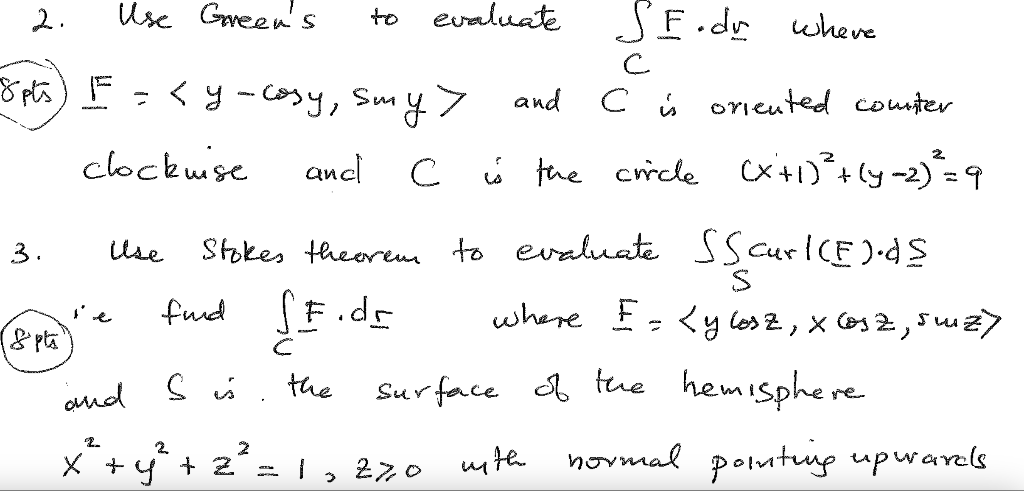 2. Use Green's to evaluate ∫ F.dr where
C
8pts) F = < y - cosy, siny > and C is oriented counter
clockwise and C is the circle (x+1)²+(y-2)²=9
3. Use Stokes theorem to evaluate ∫∫curl(F).dS
S
i.e find ∫F.dr where F = <y cosz, x cosz, sinz>
C
8pts
and S is. the surface of the hemisphere
x²+y²+z²=1, z≥0 with normal pointing upwards